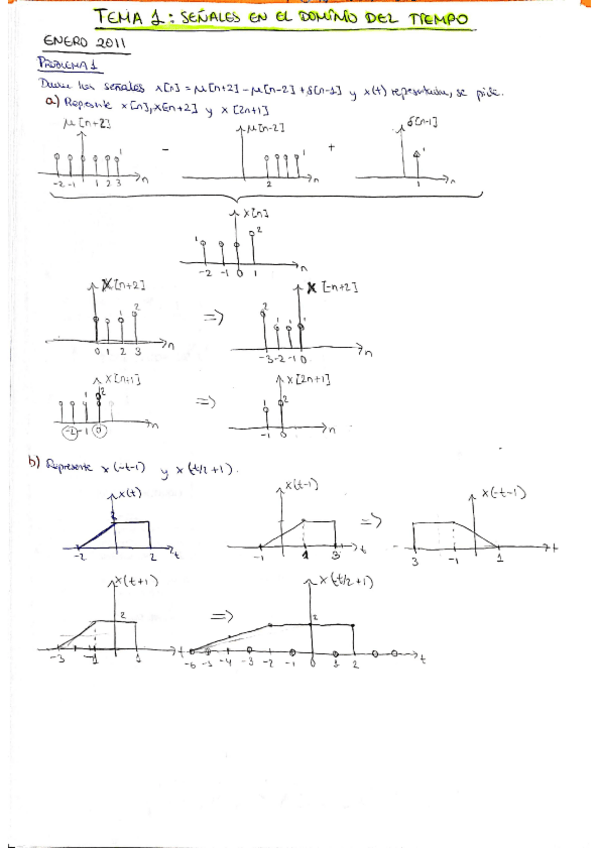 TEMA 1: SEÑALES EN EL DOMINIO DEL TIEMPO
ENERO 2011
PROBLEMA 1
señales x[n] = μ[n+2] - μ[n-2] + δ[n-1] y x(t) se pide.
a) Represente x[n], x[n+2] y x[2n+1]
μ[n+2] - μ[n-2] + δ[n-1]
1 1 1
-2 -1 1 2 3 n 2 n 1 n
x[n]
1 2
-2 -1 0 1 n
x[n+2] => x[-n+2]
1 2 2 1
0 1 2 3 n -3 -2 -1 0 n
x[n+1] => x[2n+1]
1 2 1 2
-2 -1 0 n -1 0 n
b) Represente x(-t-1) y x(t/2+1).
x(t) x(t-1) => x(-t-1)
-2 2 t -1 1 3 t 3 -1 1 t
x(t+1) => x(t/2+1)
2
-3 -1 1 t -6 -5 -4 -3 -2 -1 0 1 2 t